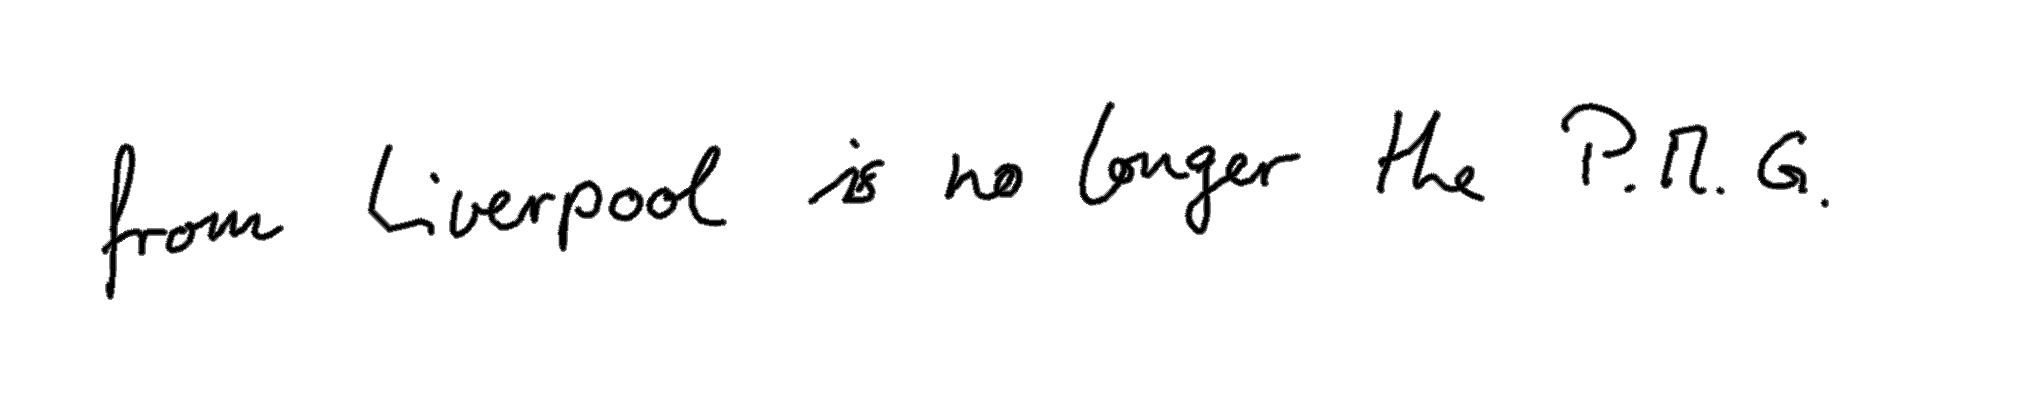 from Liverpool is no longer the P.M.G.